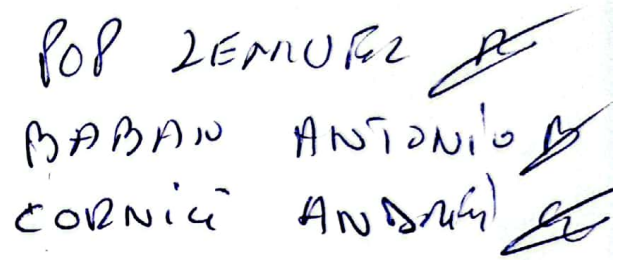 POP
BABAN ANTONIO
CORNICI ANDREI